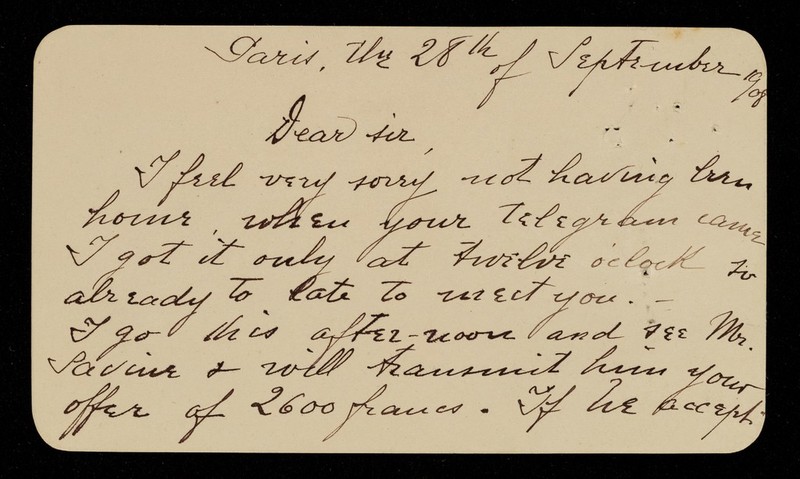 Paris, the 28th of September 19/08
Dear sir,
I feel very sorry not having been
home, when your telegram came
I got it only at twelve o'clock so
already to late to meet you. -
I go this after-noon and see Mr.
Savine & will transmit him your
offer of 2600 francs. If he accept